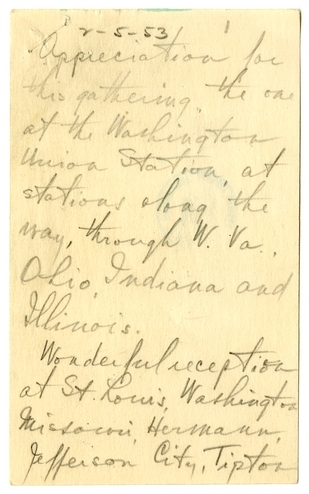 2-5-53 1
Appreciation for
this gathering, the one
at the Washington
Union Station, at
stations along the
way, through W. Va.,
Ohio, Indiana and
Illinois.
Wonderful reception
at St. Louis, Washington
Missouri, Hermann,
Jefferson City, Tipton